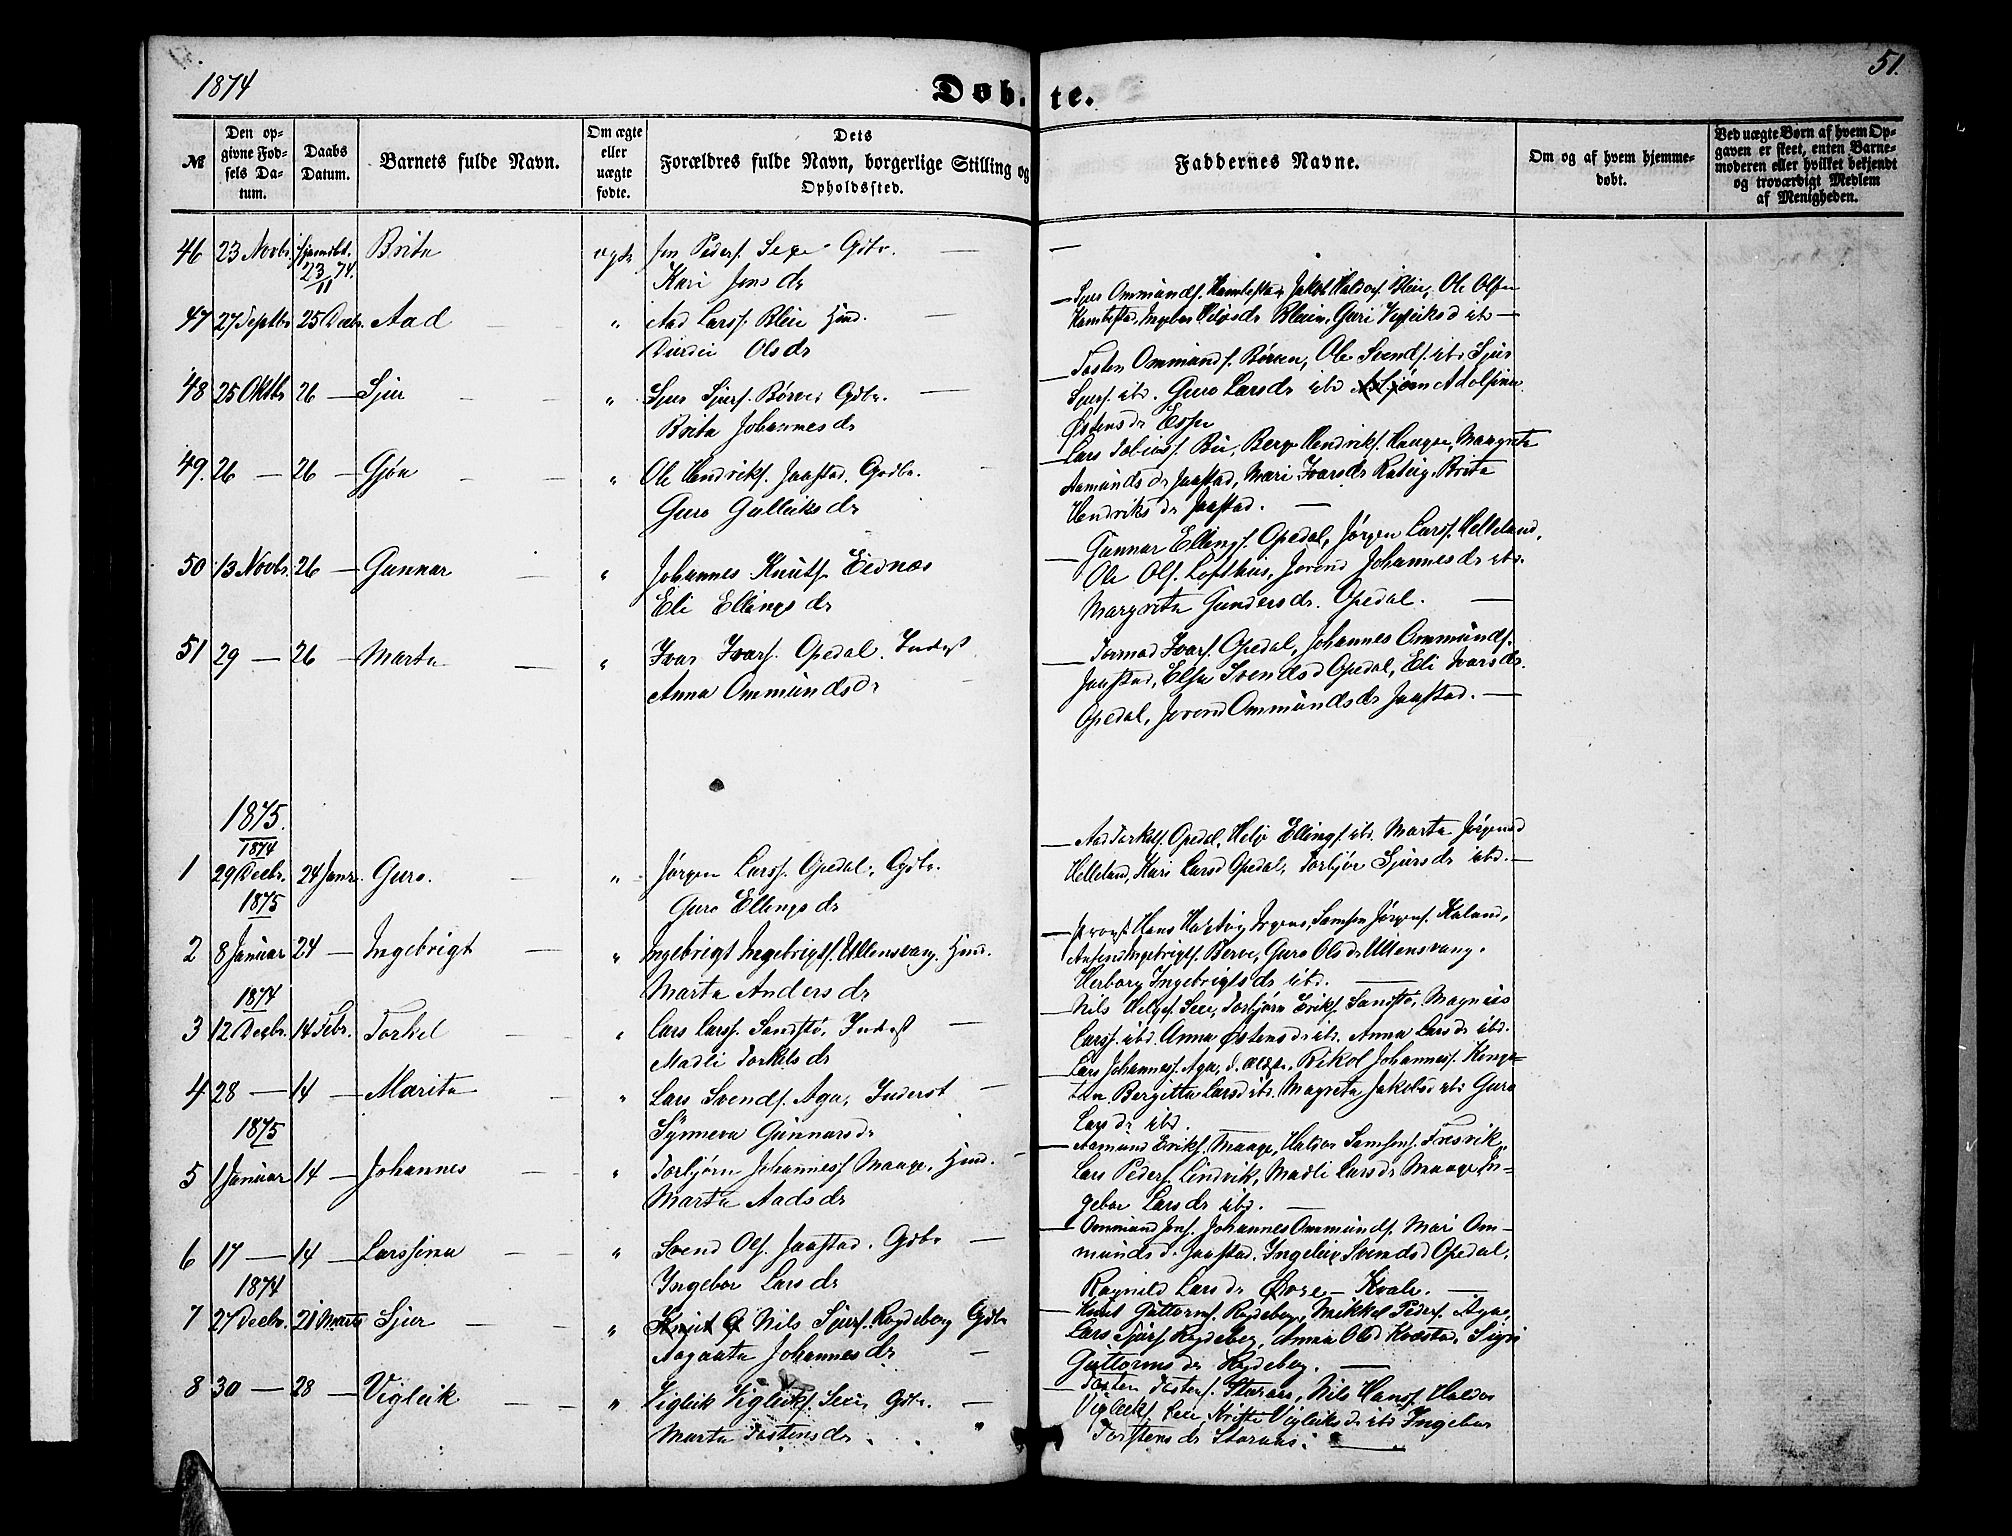 1874
Døb-te.
51.
№
Den opgivne Fødsels Datum.
Daabs Datum.
Barnets fulde Navn.
Om ægte eller uægte fødte.
Dets Forældres fulde Navn, borgerlige Stilling og Opholdssted.
Faddernes Navne.
Om og af hvem hjemmedøbt.
Ved uægte Børn af hvem Opgaven er skeet, enten Barnemoderen eller hvilket bekjendt og troværdigt Medlem af Menigheden.
46 23 Novbr hjemdbt. 23/11 74. Brita ægte Jon Peders. Sexe Gdbr. —
Kari Jonsdr
47 27 Septbr 25 Decbr. Aad — " Aad Larss. Bleie Hmd. —
Olsdr
— Sjur Ommunds. Jakob Haldors. Bleie, Ole Olsen
Guri Vigleiksd ibd —
48 25 Oktbr 26 — Sjur — " Sjur Sjurs. Børve, Gdbr. —
Brita Johannesdr
— Tosten Ommunds. Børven, Ole Svends. ibd Sjur
Sjurs. ibd. Guro Larsdr ibd Adolfina
Østensdr Espe
49. 26 — 26 — Gjøa — " Ole Hendriks. Jaastad. Gdbr. —
Guro Gulleiksdr
— Lars Tobias. Bu, Berge Hendriks. Hauge, Margreta
Aamundsdr Jaastad, Mari Ivarsdr Brita
Hendriksdr Jaastad. —
50 13 Novbr. 26 — Gunnar — " Johannes Knuts. Eidnes
Eli Ellingsdr
— Gunnar Ellings. Opedal, Jørgen Larss. Helleland,
Ole Ols. Lofthus, Jorend Johannesdr ibd.
Margreta Gundersdr. Opedal. —
51 29 — 26 — Marta — " Ivar Ivars. Opedal. Inderst
Anna Ommundsdr —
— Tormod Ivars. Opedal, Johannes Ommunds.
Jaastad, Elsa Svendsd Opedal, Eli Ivarsdr.
Opedal, Jorend Ommundsdr Jaastad. —
1875.
1874
1 29 Decbr. 24 Janr. Guro. " Jørgen Larss. Opedal, Gdbr.
Guro Ellingsdr
— Aad Torkels. Opedal, Helje Ellings. ibd. Marta Jørgensd
Helleland, Kari Larsd Opedal, Torbjør Sjursdr ibd. —
1875
2 8 Januar 24 — Ingebrigt — " Ingebrigt Ingebrigts. Ullensvang. Hmd.
Marta Andersdr
— Provst Hans Samson Jørgens. Haland,
Ingebrigts. Berve, Guro Olsdr Ullensvang.
Herborg Ingebrigtsdr ibd. —
1874
3 12 Decbr. 14 Febr. Torkel — " Lars Larss. Sandstø, Inderst —
Madli Torkelsdr
Nils Helges. Seie, Torbjørn Eriks. Sandstø, Magnus
Larss. ibd. Anna Østensdr ibd. Anna Larsdr ibd.
4 28 — 14 — Marita — " Lars Svends. Aga, Inderst —
Synneva Gunnarsdr
— Lars Johanness. Aga, d. ældre. Nikol Johanness.
Bergitta Larsd ibd. Magreta Jakobsd ibd Guro
Larsdr ibd.
1875
5 1 Januar 14 — Johannes — " Torbjørn Johanness. Maage, Hmd. —
Marta Aadsdr
— Aamund Eriks. Maage, Haldor Samsons. Fresvik,
Lars Peders. Lindvik, Madli Larsdr Maage, In-
gebor Larsdr ibd. —
6 17 — 14 — Larssina — " Svend Ols. Jaastad. Gdbr —
Ingebor Larsdr
— Ommund Jons. Johannes Ommunds. Mari Om-
mundsd. Jaastad. Ingeleiv Svendsd Opedal.
Ragnild Larsdr Øvre-Kvale. —
1874
7 27 Decbr. 21 Marts Sjur — " Nils Sjurs. Rogdeberg Gdbr
Aagaata Johannesdr —
— Knut Guttorms. Rogdeberg, Mikkel Peders. Aga,
Lars Sjurs. Rogdeberg, Anna Olsd Kvestad, Sigri
Guttormsdr Rogdeberg. —
8 30 — 28 — Vigleik — " Vigleik Vigleiks. Seie, Gdbr. —
Marta Tostensdr
— Tosten Tostens. Staraas, Nils Hanss. Haldor
Vigleiks. Seie, Vigleiksdr ibd Ingebor
Torstensdr Staraas. —